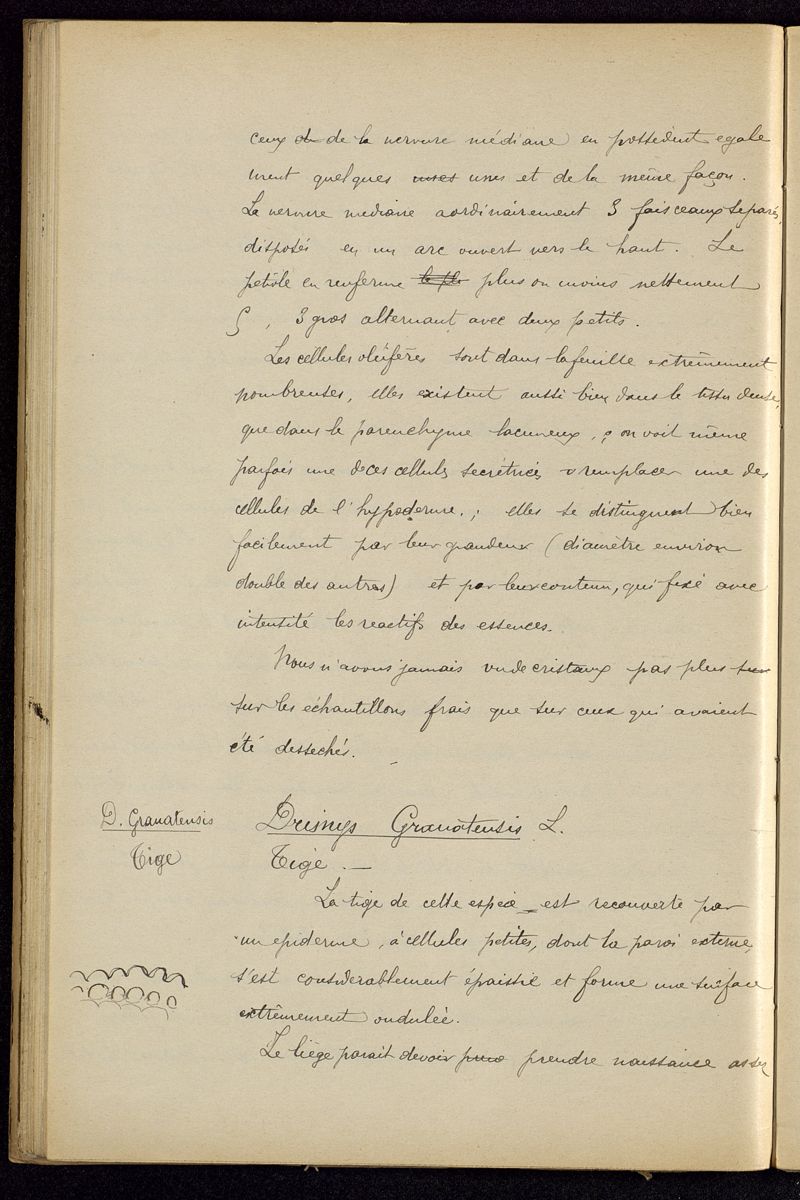 ceux d de la nervure médiane en possèdent egale
ment quelques unes unes et de la même façon.
La nervure mediane a ordinairement 3 faisceaux separés,
disposés en un arc ouvert vers le haut. Le
petiole en renferme plus ou moins nettement
5, 3 gros alternant avec deux petits.
Les cellules oléifères sont dans la feuille extrêmement
nombreuses, elles existent aussi bien dans le tissu dense,
que dans le parenchyme lacuneux, ; on voit même
parfois une de ces cellules secrétrices remplacer une des
cellules de l'hypoderme, ; elles se distinguent bien
facilement par leur grandeur (diamètre environ
double des autres) et par leur contenu, qui fixe avec
intensité les reactifs des essences.
Nous n'avons jamais vu de cristaux pas plus sur
sur les échantillons frais que sur ceux qui avaient
été dessechés.
D. Granatensis
Tige
Drimys Granatensis L.
Tige. —
La tige de cette espèce est recouverte par
un epiderme, à cellules petites, dont la paroi externe,
s'est considerablement épaissie et forme une surface
extrêmement ondulée.
Le liège parait devoir prendre naissance assez